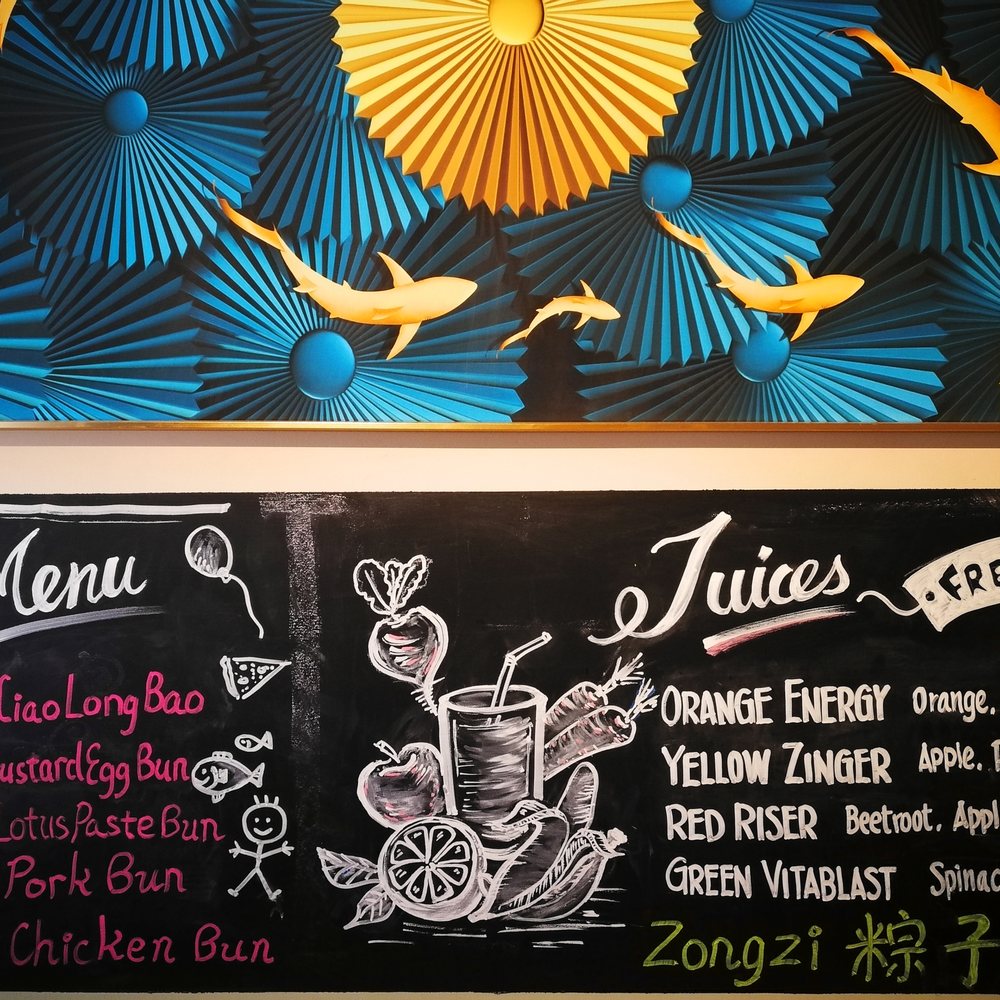 Menu
Xiao Long Bao
ustard Egg Bun
Lotus Paste Bun
Pork Bun
Chicken Bun
Juices
FRE
ORANGE ENERGY Orange.
YELLOW ZINGER Apple.
RED RISER Beetroot. Appl
GREEN VITABLAST Spinac
Zongzi 粽子